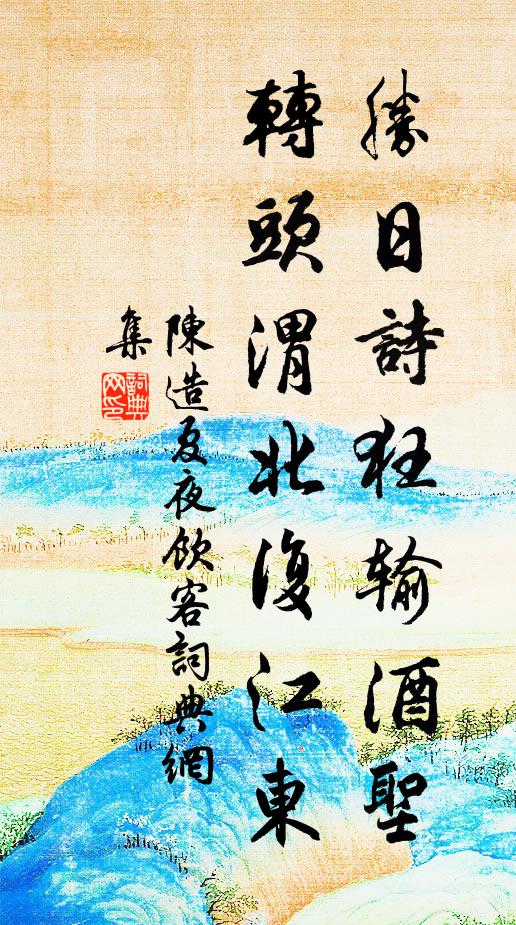 勝日詩狂输酒聖
轉頭渭北復江東
陳造夏夜飲客詞典網
集
詞典网印